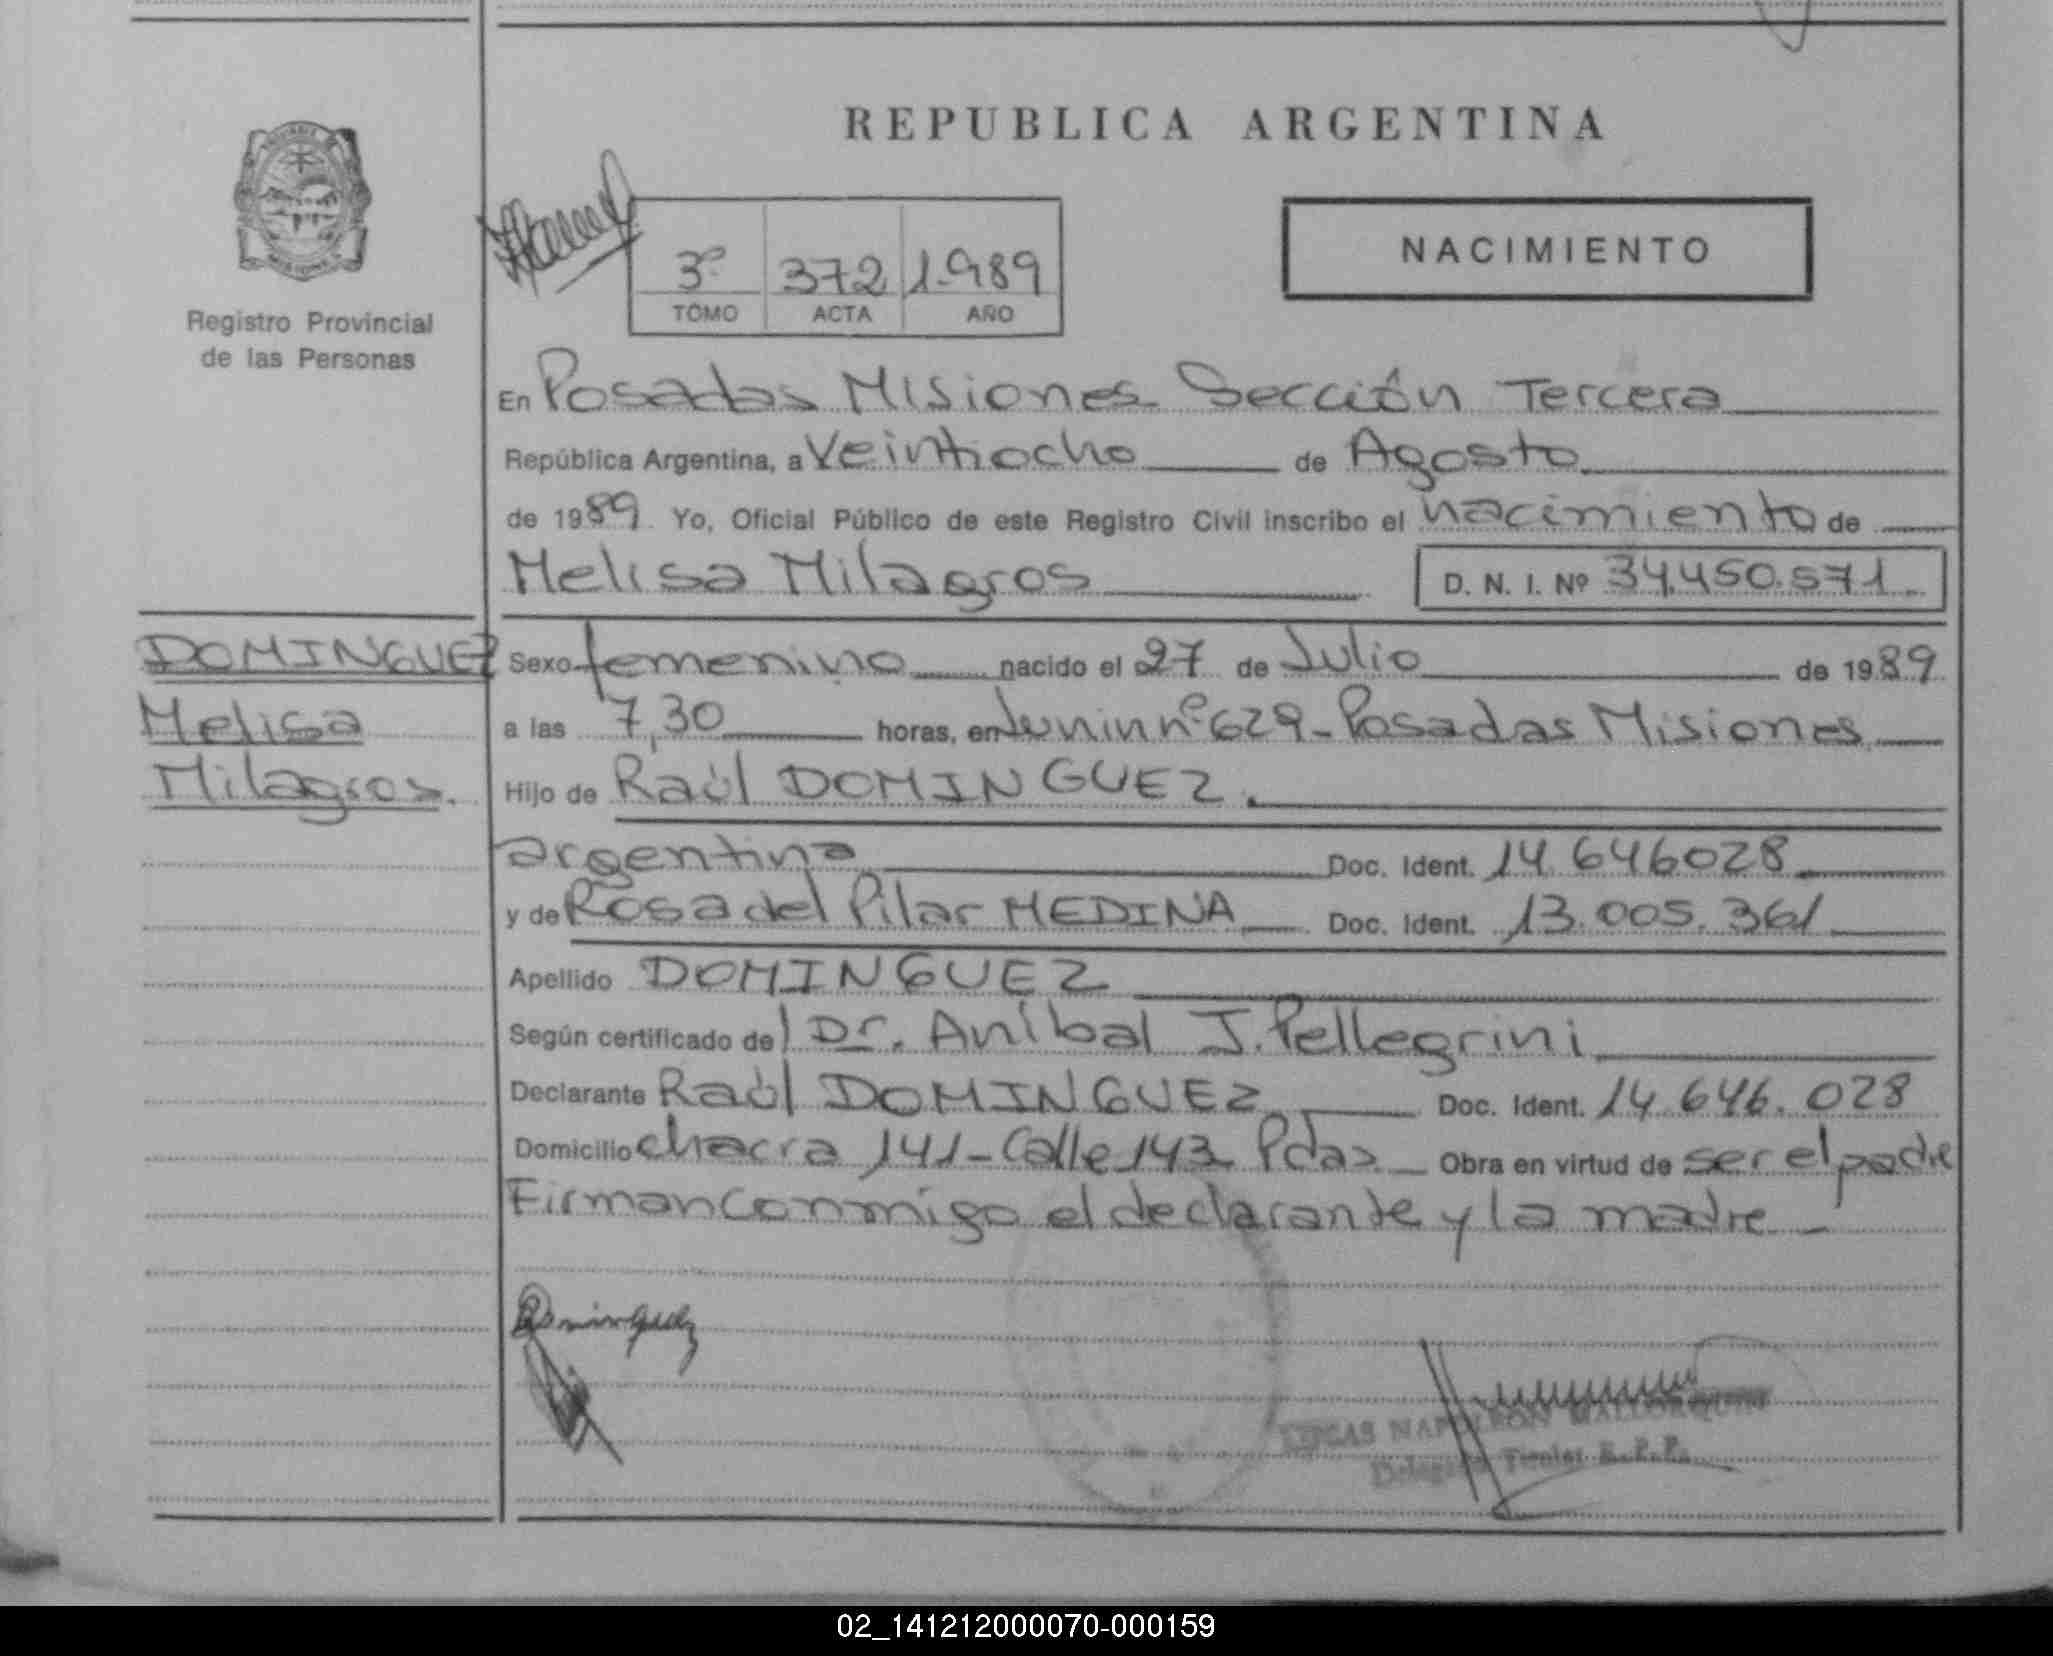 REPUBLICA ARGENTINA
NACIMIENTO
3º 372 1.989
TOMO ACTA AÑO
Registro Provincial
de las Personas
En Posadas Misiones Sección Tercera
República Argentina, a Veintiocho de Agosto
de 1989 Yo, Oficial Público de este Registro Civil inscribo el nacimiento de
Melisa Milagros D. N. I. Nº 34.450.571
DOMINGUEZ
Melisa
Milagros.
Sexo femenino nacido el 27 de Julio de 1989
a las 7,30 horas, en Junin nº 629 - Posadas Misiones
Hijo de Raúl DOMINGUEZ.
argentina Doc. Ident. 14.646028
y de Rosa del Pilar MEDINA Doc. Ident. 13.005.361
Apellido DOMINGUEZ
Según certificado del Dr. Aníbal J. Pellegrini
Declarante Raúl DOMINGUEZ Doc. Ident. 14.646.028
Domicilio chacra 141 - Calle 143 Pdas Obra en virtud de ser el padre
Firman conmigo el declarante y la madre -
Dominguez
LUCAS NAPOLEON MALLORQUIN
Delegado Titular R.P.P.
02_141212000070-000159